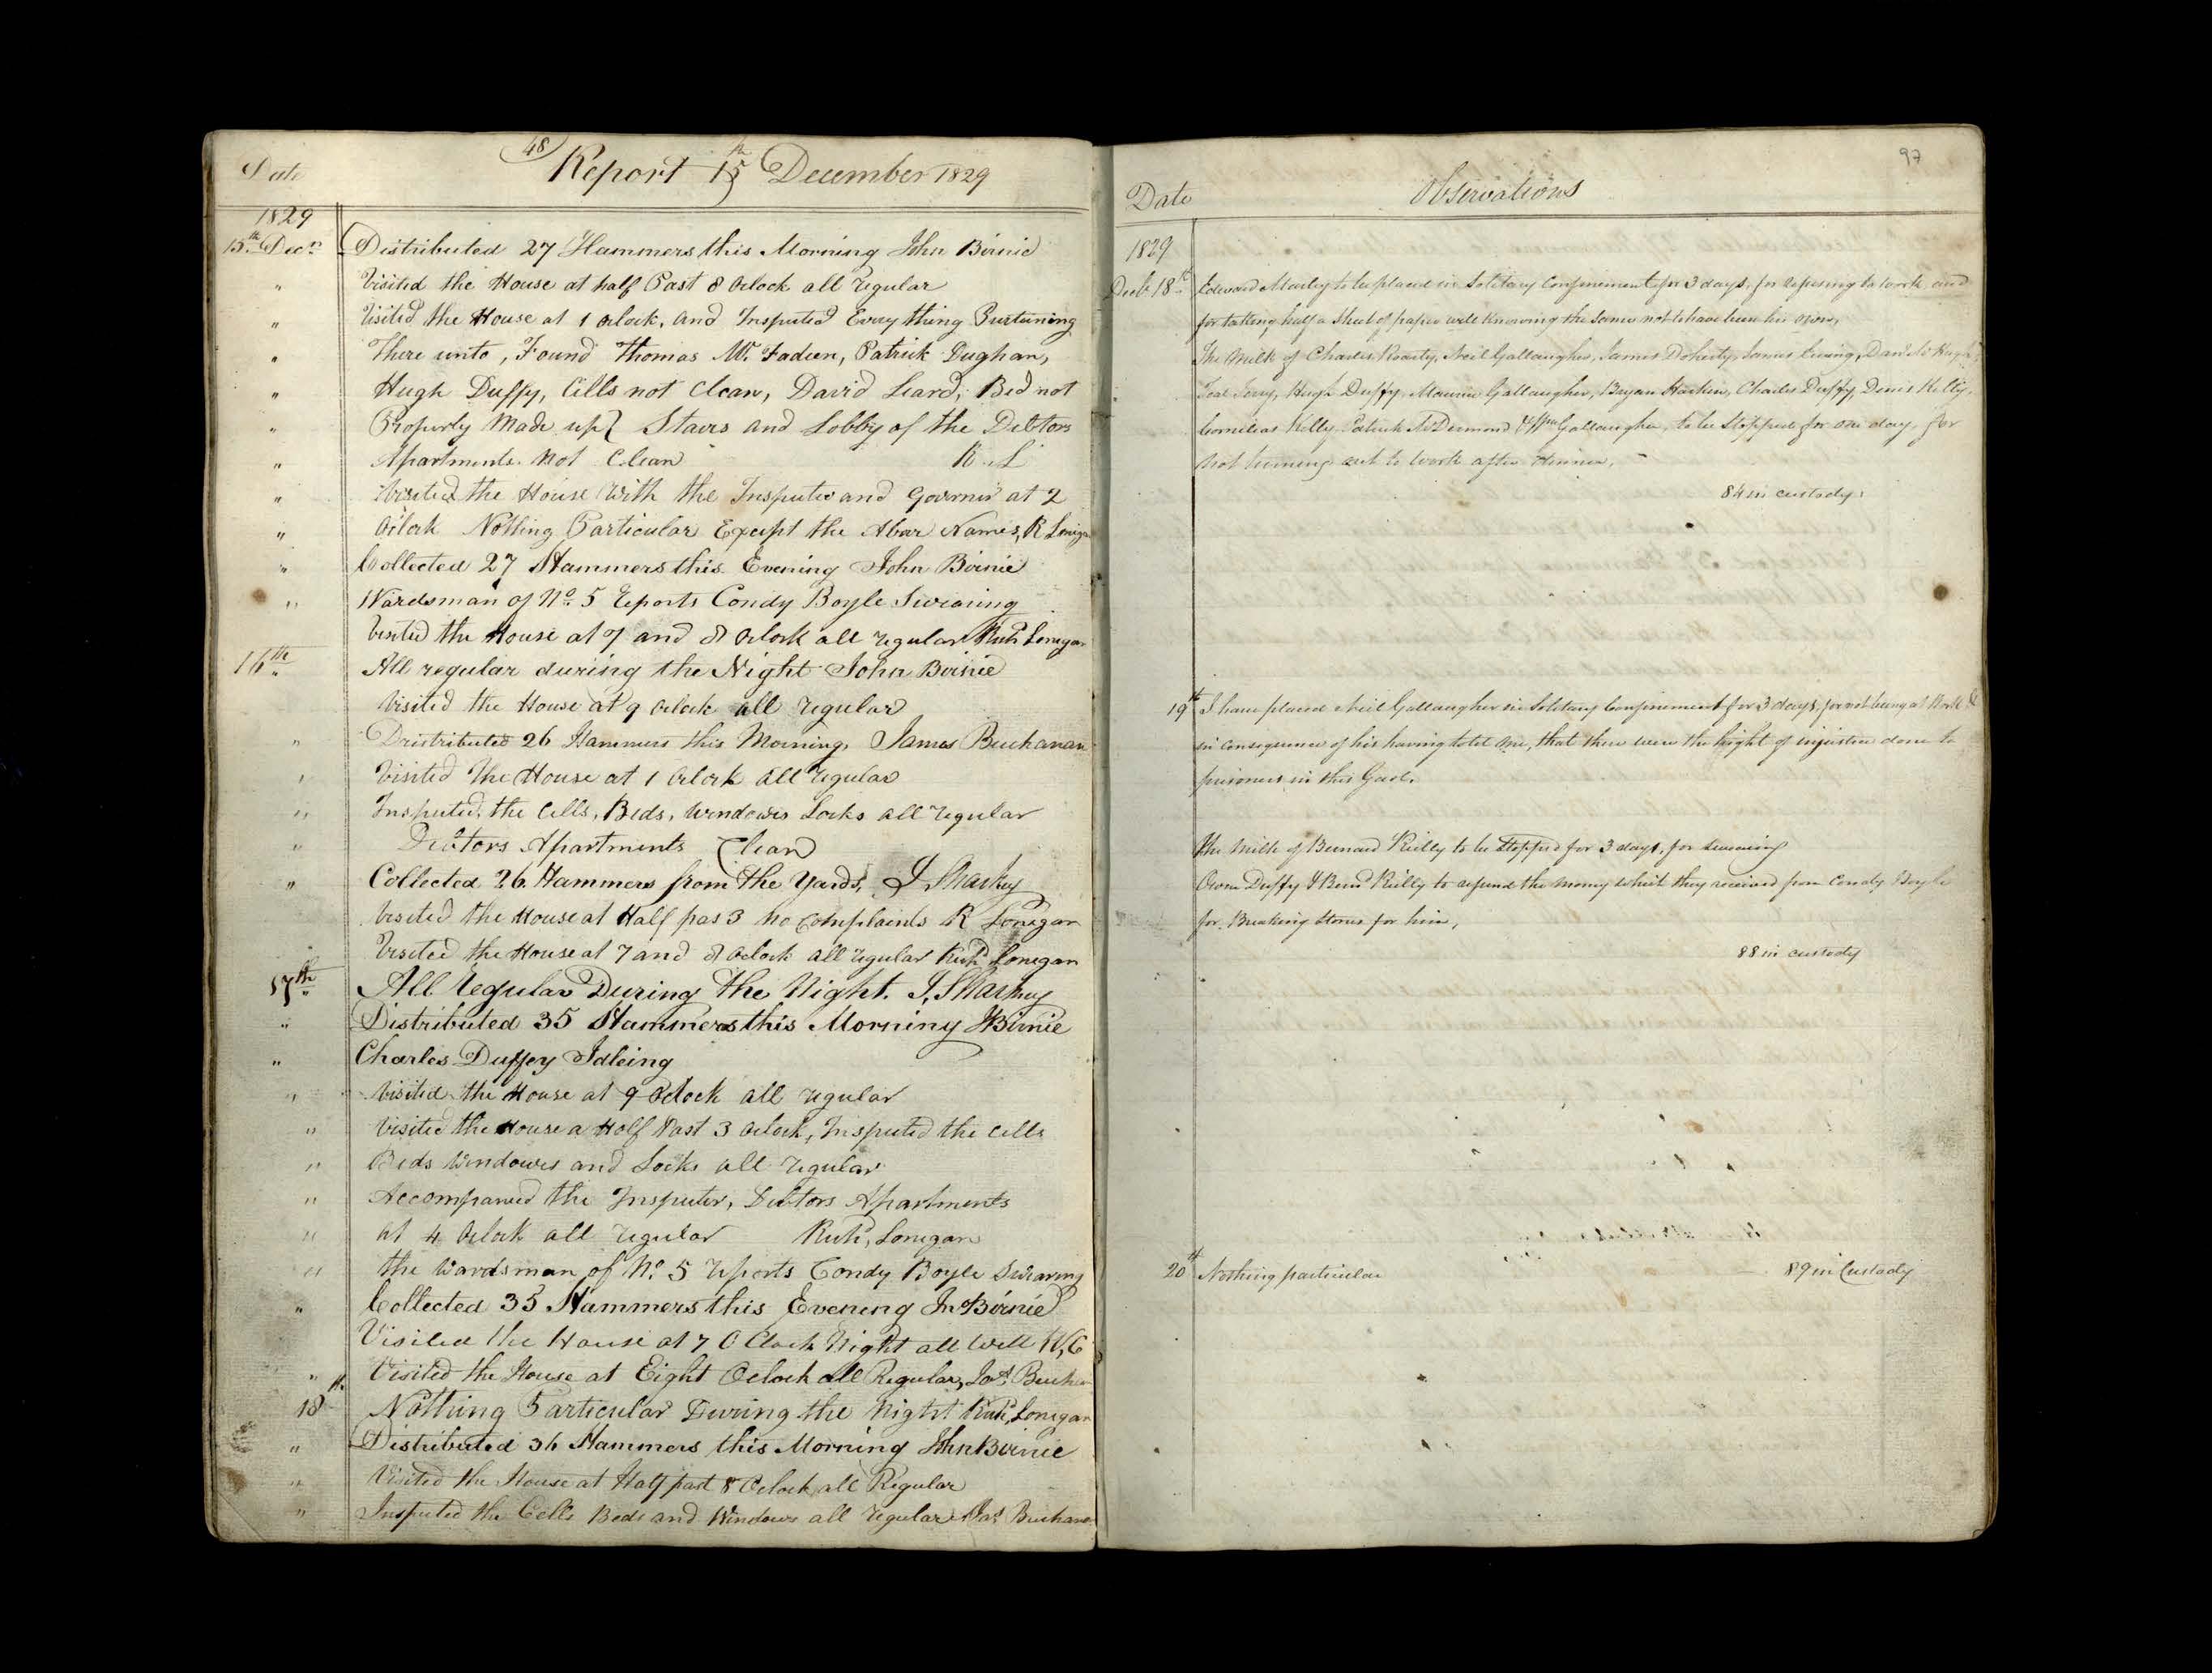 48
Date Report 15th December 1829
1829
15th Decr Distributed 27 Hammers this Morning John Birnie
" Visited the House at half Past 8 Oclock all regular
" Visited the House at 1 Oclock, and Inspected Every thing Purtaining
" There unto, Found Thomas Mc Fadien, Patrick Dughan,
" Hugh Duffy, Cells not Clean, David Leard, Bed not
" Properly Made up Stairs and Lobby of the Debtors
" Apartments. Not Clean R. L
" Visited the House With the Inspector and Governor at 2
" Oclock Nothing Particular Except the Above Names, R Lonigan
" Collected 27 Hammers this Evening John Birnie
" Wardsman of No. 5 reports Condy Boyle Swearing
Visited the House at 7 and 8 Oclock all regular Richd Lonigan
16th All regular during the Night John Birnie
Visited the House at 9 Oclock all regular
" Dristributed 26 Hammers this Morning, James Buchanan
" Visited the House at 1 Oclock all regular
" Inspected, the Cells, Beds, Windows Locks all regular
" Debtors Apartments Clean
" Collected 26 Hammers from the Yards, J Sharkey
Visited the House at Half pas 3 no Complaints R Lonigan
" Visited the House at 7 and 8 Oclock all regular Richd Lonigan
17th All regular During the Night. J, Sharkey
" Distributed 35 Hammers this Morning J Birnie
" Charles Duffey Idleing
" Visited the House at 9 Oclock all regular
" Visited the House a Half Past 3 Oclock, Inspected the Cells
" Beds Windows and Locks all regular
" Accompaned the Inspector, Debtors Apartments
" at 4 Oclock all regular Richd, Lonigan
" the Wardsman of No. 5 reports Condy Boyle Swearing
" Collected 35 Hammers this Evening Jn Birnie
Visited the House at 7 O Clock Night all Well W,C
" Visited the House at Eight Oclock all Regular, Jas
18th Nothing Particular During the Night Richd, Lonigan
" Distributed 36 Hammers this Morning John Birnie
" Visited the House at Half past 8 Oclock all Regular
" Inspected the Cells Beds and Windows all regular Jas Buchanan
97
Date Observations
1829
Decb. 18th Edward Morley to be placed in Solitary Confinement for 3 days, for refusing to work and
for taking half a Sheet of paper well Knowing the Same not to have been his own,
The Milk of Charles Roarty, Neil Gallaugher, James Doherty, James
Hugh Duffy, Gallaugher, Bryan Harkin, Charles Duffy, Denis Kelly,
Cornelias Kelly Patrick McDermond & Wm Gallaugher, to be Stopped for one day, for
not turning out to work after dinner,
84 in custody
19th I have placed Neil Gallaugher in Solitary Confinement for 3 days, for not being at Work &
in consequence of his having told me, that there were the hight of injustice done to
prisoners in this Gaol.
The Milk of Bernard Reilly to be Stopped for 3 days, for swearing
Owen Duffy & Bernd Reilly to refund the money which they received from Condy Boyle
for Breaking Stones for him,
88 in custody
20th Nothing particular 89 in Custody